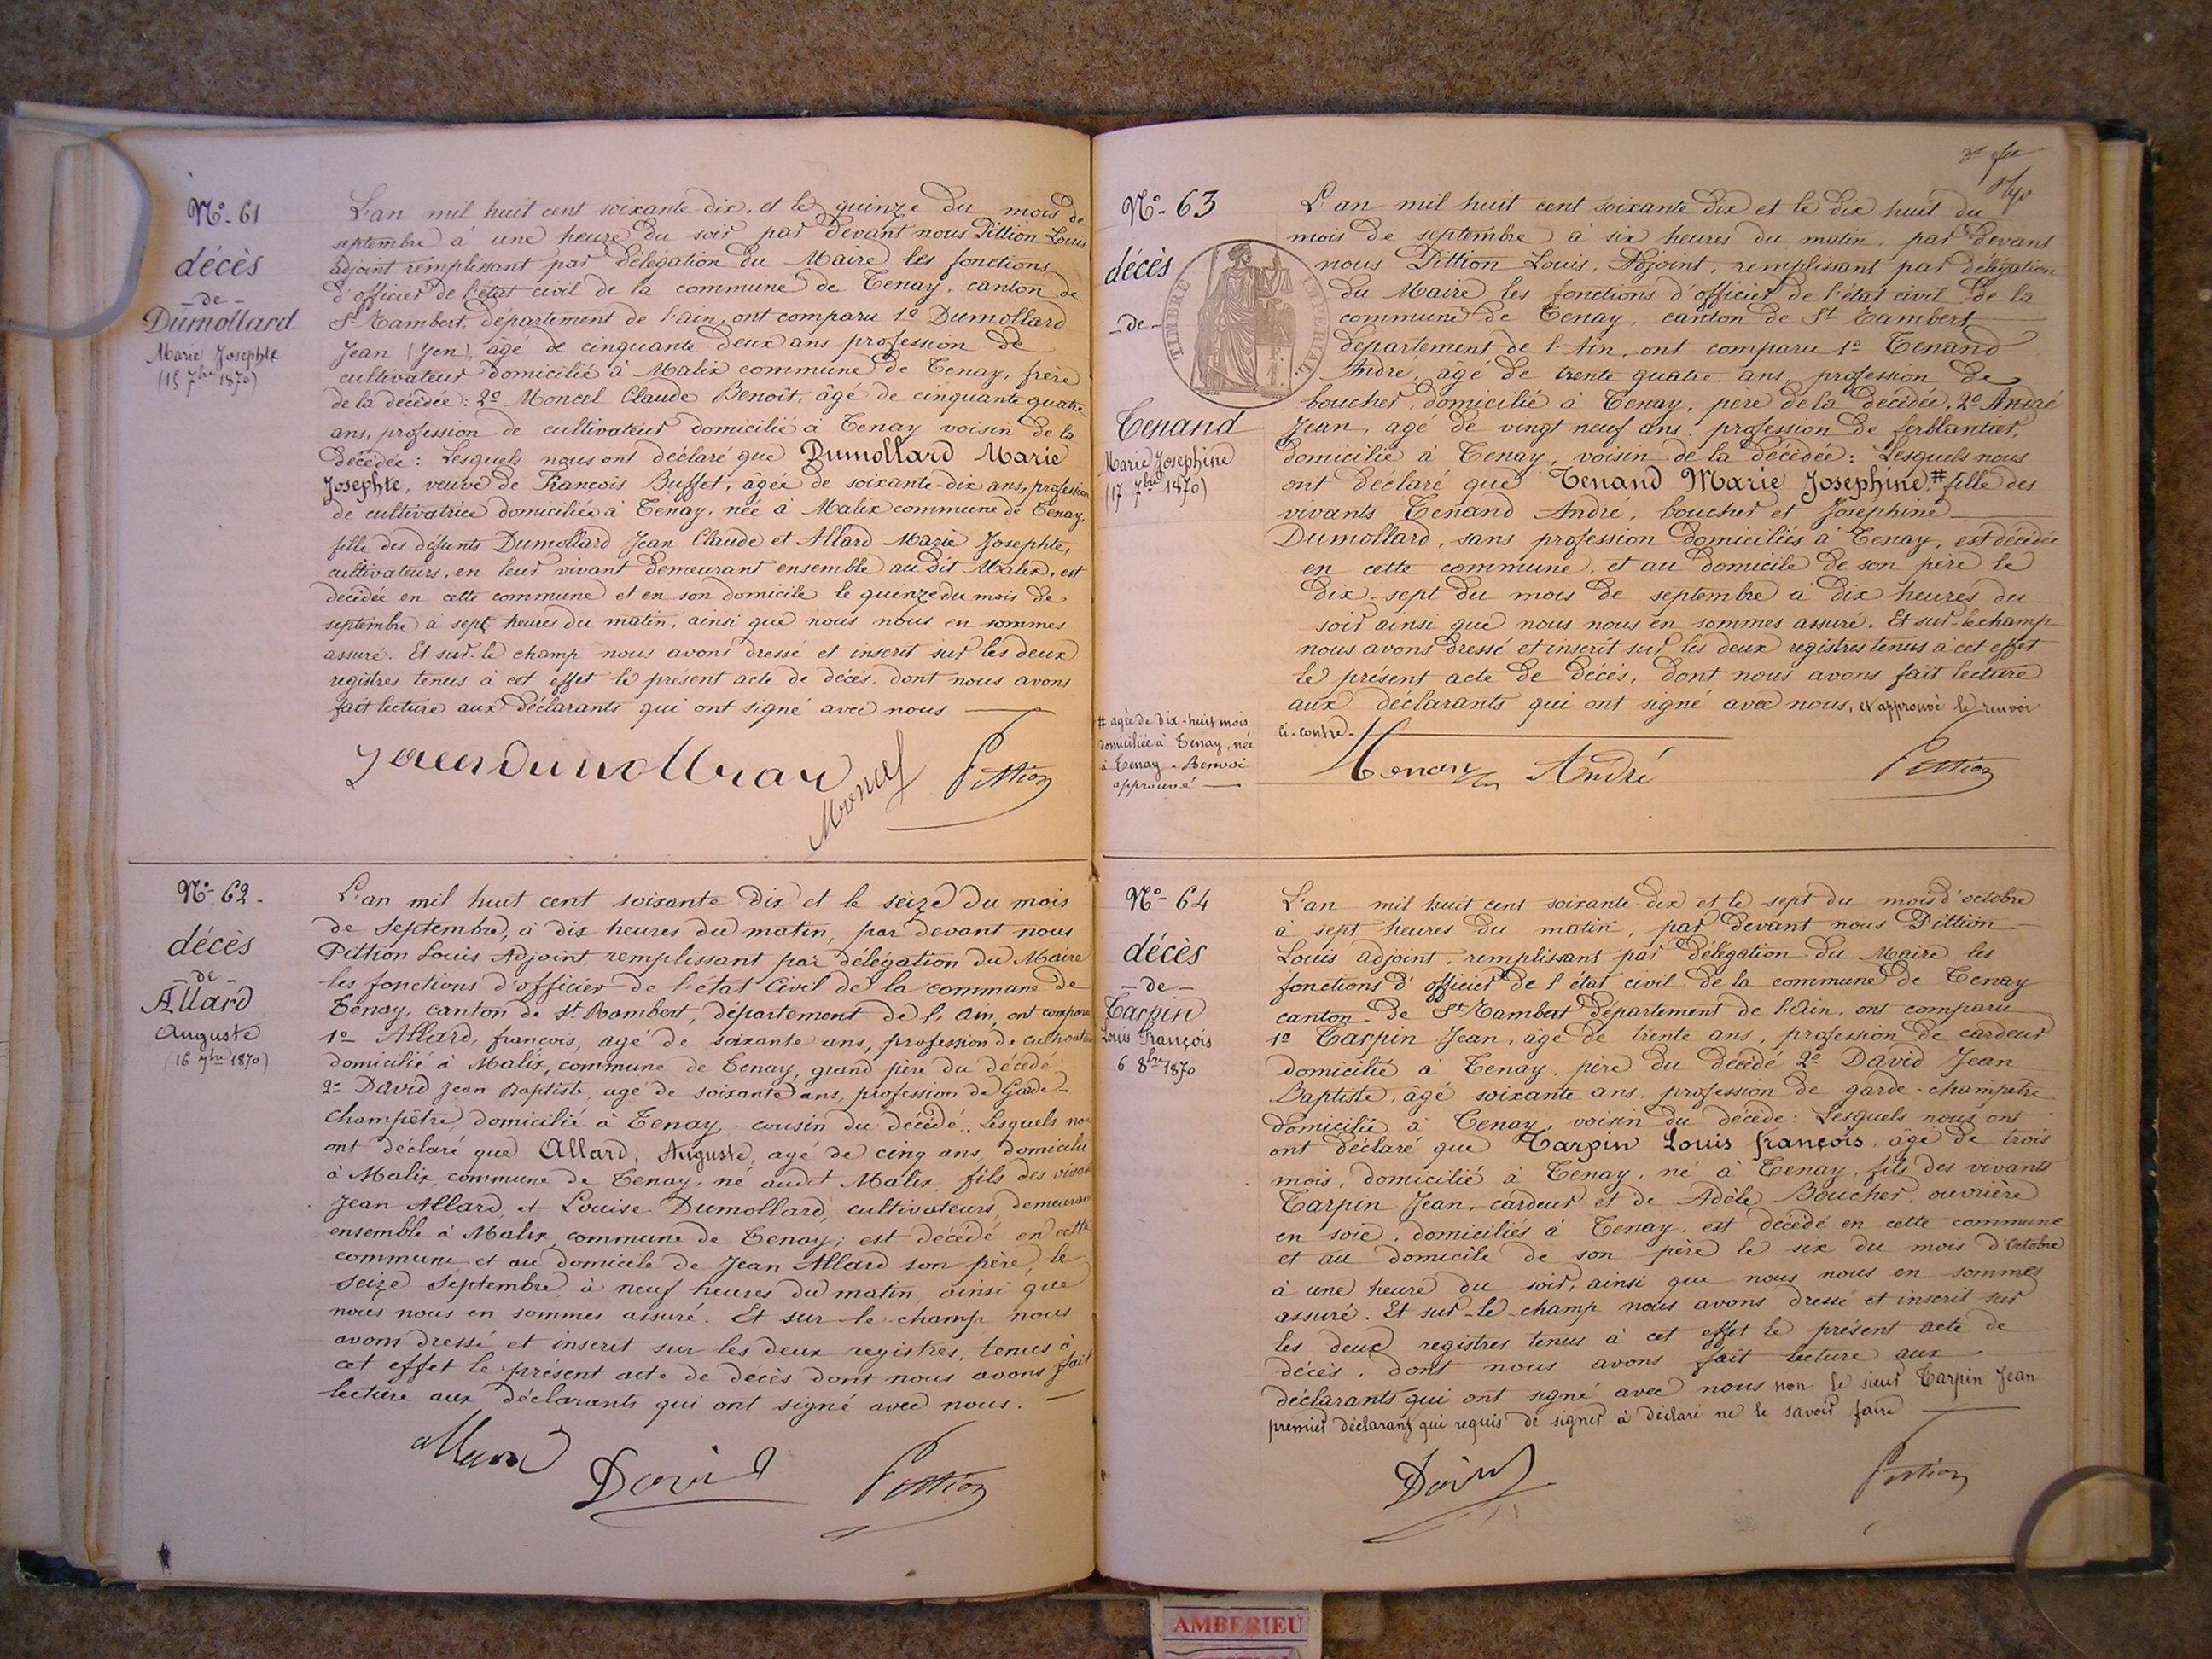 N° 61
décès
- de -
Dumollard
Marie Josephte
(15 7bre 1870)
L'an mil huit cent soixante-dix, et le quinze du mois de
septembre à une heure du soir par devant nous Pittion Louis
adjoint remplissant par délégation du Maire les fonctions
d'officier de l'état civil de la commune de Tenay, canton de
St Rambert, département de l'ain, ont comparu 1° Dumollard
Jean (Yen), âgé de cinquante deux ans profession de
cultivateur domicilié à Malix commune de Tenay, frère
de la décédée: 2° Moncel Claude Benoît, âgé de cinquante quatre
ans, profession de cultivateur domicilié à Tenay voisin de la
décédée: Lesquels nous ont déclaré que Dumollard Marie
Josephte, veuve de François Buffet, âgée de soixante-dix ans, profession
de cultivatrice domiciliée à Tenay, née à Malix commune de Tenay,
fille des défunts Dumollard Jean Claude et Allard Marie Josephte,
cultivateurs, en leur vivant demeurant ensemble au dit Malix, est
décédée en cette commune et en son domicile le quinze du mois de
septembre à sept heures du matin, ainsi que nous nous en sommes
assuré. Et sur-le champ nous avons dressé et inscrit sur les deux
registres tenus à cet effet le présent acte de décès, dont nous avons
fait lecture aux déclarants qui ont signé avec nous
Moncel
Pittion
N° 62
décès
- de -
Allard
Auguste
(16 7bre 1870)
L'an mil huit cent soixante dix et le seize du mois
de Septembre, à dix heures du matin, par devant nous
Pittion Louis Adjoint, remplissant par délégation du Maire
les fonctions d'officier de l'état Civil de la commune de
Tenay, canton de St Rambert, département de l'Ain, ont comparu
1° Allard, françois, agé de soixante ans, profession de cultivateur
domicilié à Malix, commune de Tenay, grand père du décédé
2° David Jean Baptiste, agé de soixante ans, profession de Garde-
Champêtre, domicilié à Tenay cousin du décédé; Lesquels nous
ont déclaré que Allard, Auguste, agé de cinq ans, domicilié
à Malix, commune de Tenay, né audit Malix, fils des vivants
Jean Allard, et Louise Dumollard, cultivateurs, demeurant
ensemble à Malix commune de Tenay; est décédé en cette
commune et au domicile de Jean Allard son père, le
seize Septembre à neuf heures du matin, ainsi que
nous nous en sommes assuré. Et sur le champ nous
avons dressé et inscrit sur les deux registres, tenus à
cet effet le présent acte de décès dont nous avons fait
lecture aux déclarants qui ont signé avec nous.
allard
David
Pittion
N° 63
décès
- de -
TIMBRE IMPERIAL
Tenand
Marie Josephine
(17 7bre 1870)
L'an mil huit cent soixante dix et le dix huit du
mois de septembre à six heures du matin, par devant
nous Pittion Louis, Adjoint, remplissant par délégation
du Maire les fonctions d'officier de l'état civil de la
commune de Tenay, canton de St Rambert
département de l'Ain, ont comparu 1° Tenand
André, agé de trente quatre ans, profession de
boucher, domicilié à Tenay, père de la décédée, 2° André
Jean, agé de vingt neuf ans, profession de ferblantier,
domicilié à Tenay, voisin de la décédée: Lesquels nous
ont déclaré que Tenand Marie Josephine, # fille des
vivants Tenand André, boucher et Joséphine
Dumollard, sans profession domiciliés à Tenay, est décédée
en cette commune, et au domicile de son père le
dix-sept du mois de septembre à dix heures du
soir ainsi que nous nous en sommes assuré. Et sur-le champ
nous avons dressé et inscrit sur les deux registres tenus à cet effet
le présent acte de décès, dont nous avons fait lecture
aux déclarants qui ont signé avec nous, et approuvé le renvoi
ci-contre-
# agée de dix-huit mois
domiciliée à Tenay, née
à Tenay - Renvoi
approuvé
Tenand
André
Pittion
N° 64
décès
- de -
Tarpin
Louis François
6 8bre 1870
L'an mil huit cent soixante-dix et le sept du mois d'octobre
à sept heures du matin, par devant nous Pittion
Louis adjoint, remplissant par délégation du Maire les
fonctions d'officier de l'état civil de la commune de Tenay
canton de St Rambert département de l'Ain, ont comparu
1° Tarpin Jean, âgé de trente ans, profession de cardeur
domicilié à Tenay, père du décédé 2° David Jean
Baptiste, âgé soixante ans, profession de garde-champêtre
domicilié à Tenay, voisin du décédé: Lesquels nous ont
ont déclaré que Tarpin Louis françois, âgé de trois
mois, domicilié à Tenay, né à Tenay, fils des vivants
Tarpin Jean, cardeur et de Adèle Boucher, ouvrière
en soie, domiciliés à Tenay, est décédé en cette commune
et au domicile de son père le six du mois d'Octobre
à une heure du soir, ainsi que nous nous en sommes
assuré. Et sur-le-champ nous avons dressé et inscrit sur
les deux registres tenus à cet effet le présent acte de
décès, dont nous avons fait lecture aux
déclarants qui ont signé avec nous non le sieur Tarpin Jean
premier déclarant qui requis de signer à déclaré ne le savoir faire
David
Pittion
AMBERIEU